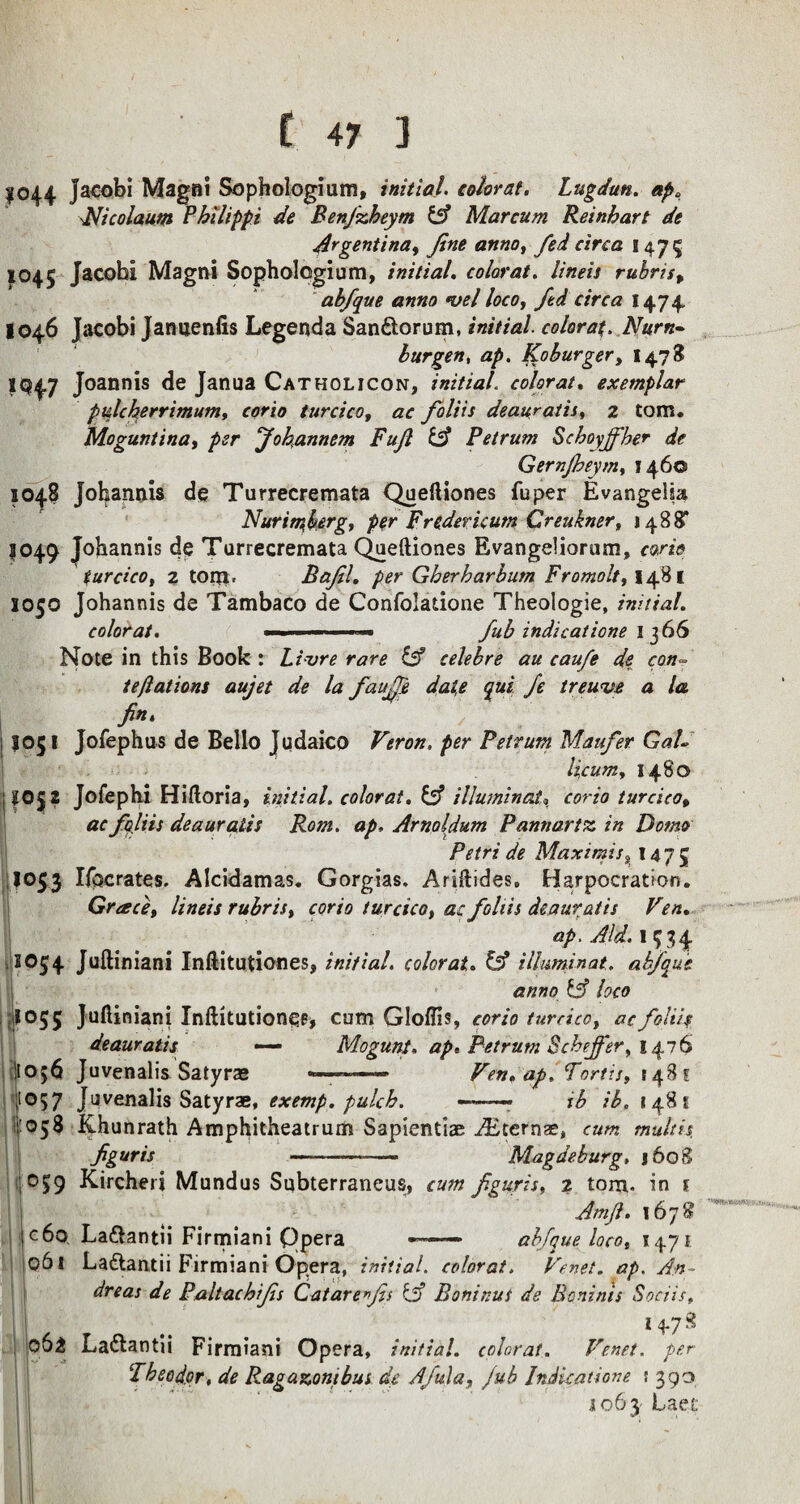 [ 47 ]
1044 Jacobi Magni Sophologium, initial. colorat. Lugdun. ap.
Nicolaum Philippi de Benſzheym & Marcum Reinhart de
Argentina, ſine anno, ſed circa 1475
1045 Jacobi Magni Sophologium, initial. colorat. lineis rubris,
abſque anno vel loco, ſed circa 1474
1046 Jacobi Januenſis Legenda Sanctorum, initial. colorat. Nurn-
burgen, ap. Koburger, 1478
1047 Joannis de Janua CATHOLICON, initial. colorat. exemplar
pulcherrimum, corio turcico, ac foliis deauratis, 2 tom.
Moguntina, per Johannem Fuſt & Petrum Schoyffher de
Gernſheym, 1460
1048 Johannis de Turrecremata Queſtiones ſuper Evangelia
Nurimberg, per Fredericum Creukner, 1488
1049 Johannis de Turrecremata Queſtiones Evangeliorum, corio
turcico, 2 tom. Baſil. per Gherharbum Fromolt, 1481
1050 Johannis de Tambaco de Conſolatione Theologie, initial.
colorat. ——— ſub indicatione 1366
Note in this Book : Livre rare & celebre au cauſe de con-
teſtations aujet de la fauſſe date qui ſe treuve a la
fin.
1051 Joſephus de Bello Judaico Veron. per Petrum Mauſer Gal-
licum, 1480
1052 Joſephi Hiſtoria, initial. colorat. & illuminat, corio turcico,
ac foliis deauratis Rom. ap. Arnoldum Pannartz in Domo
Petri de Maximis, 1475
1053 Iſocrates. Alcidamas. Gorgias. Ariſtides. Harpocration.
Græcè, lineis rubris, corio turcico, ac foliis deauratis Ven.
ap. Ald. 1534
1054 Juſtiniani Inſtitutiones, initial. colorat. & illuminat. abſque
anno & loco
1055 Juſtiniani Inſtitutiones, cum Gloſſis, corio turcico, ac foliis
deauratis — Mogunt. ap. Petrum Scheffer, 1476
1056 Juvenalis Satyræ ——— Ven. ap. Tortis, 1481
1057 Juvenalis Satyræ, exemp. pulch. —— ib ib. 1481
1058 Khunrath Amphitheatrum Sapientiæ Æternæ, cum multis
figuris ——— Magdeburg, 1608
059 Kircheri Mundus Subterraneus, cum figuris, 2 tom. in 1
Amſt. 1678
c60 Lactantii Firmiani Opera —— abſque loco, 1471
061 Lactantii Firmiani Opera, initial. colorat. Venet. ap. An-
dreas de Paltachiſis Catarenſis & Boninus de Boninis Sociis,
1478
062 Lactantii Firmiani Opera, initial. colorat. Venet. per
Theodor. de Ragazonibus de Aſula, ſub Indicatione 1390
1063 Laet